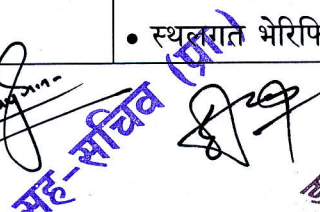 • स्थलगत भेरिफि
सह-सचिव (प्रा.)